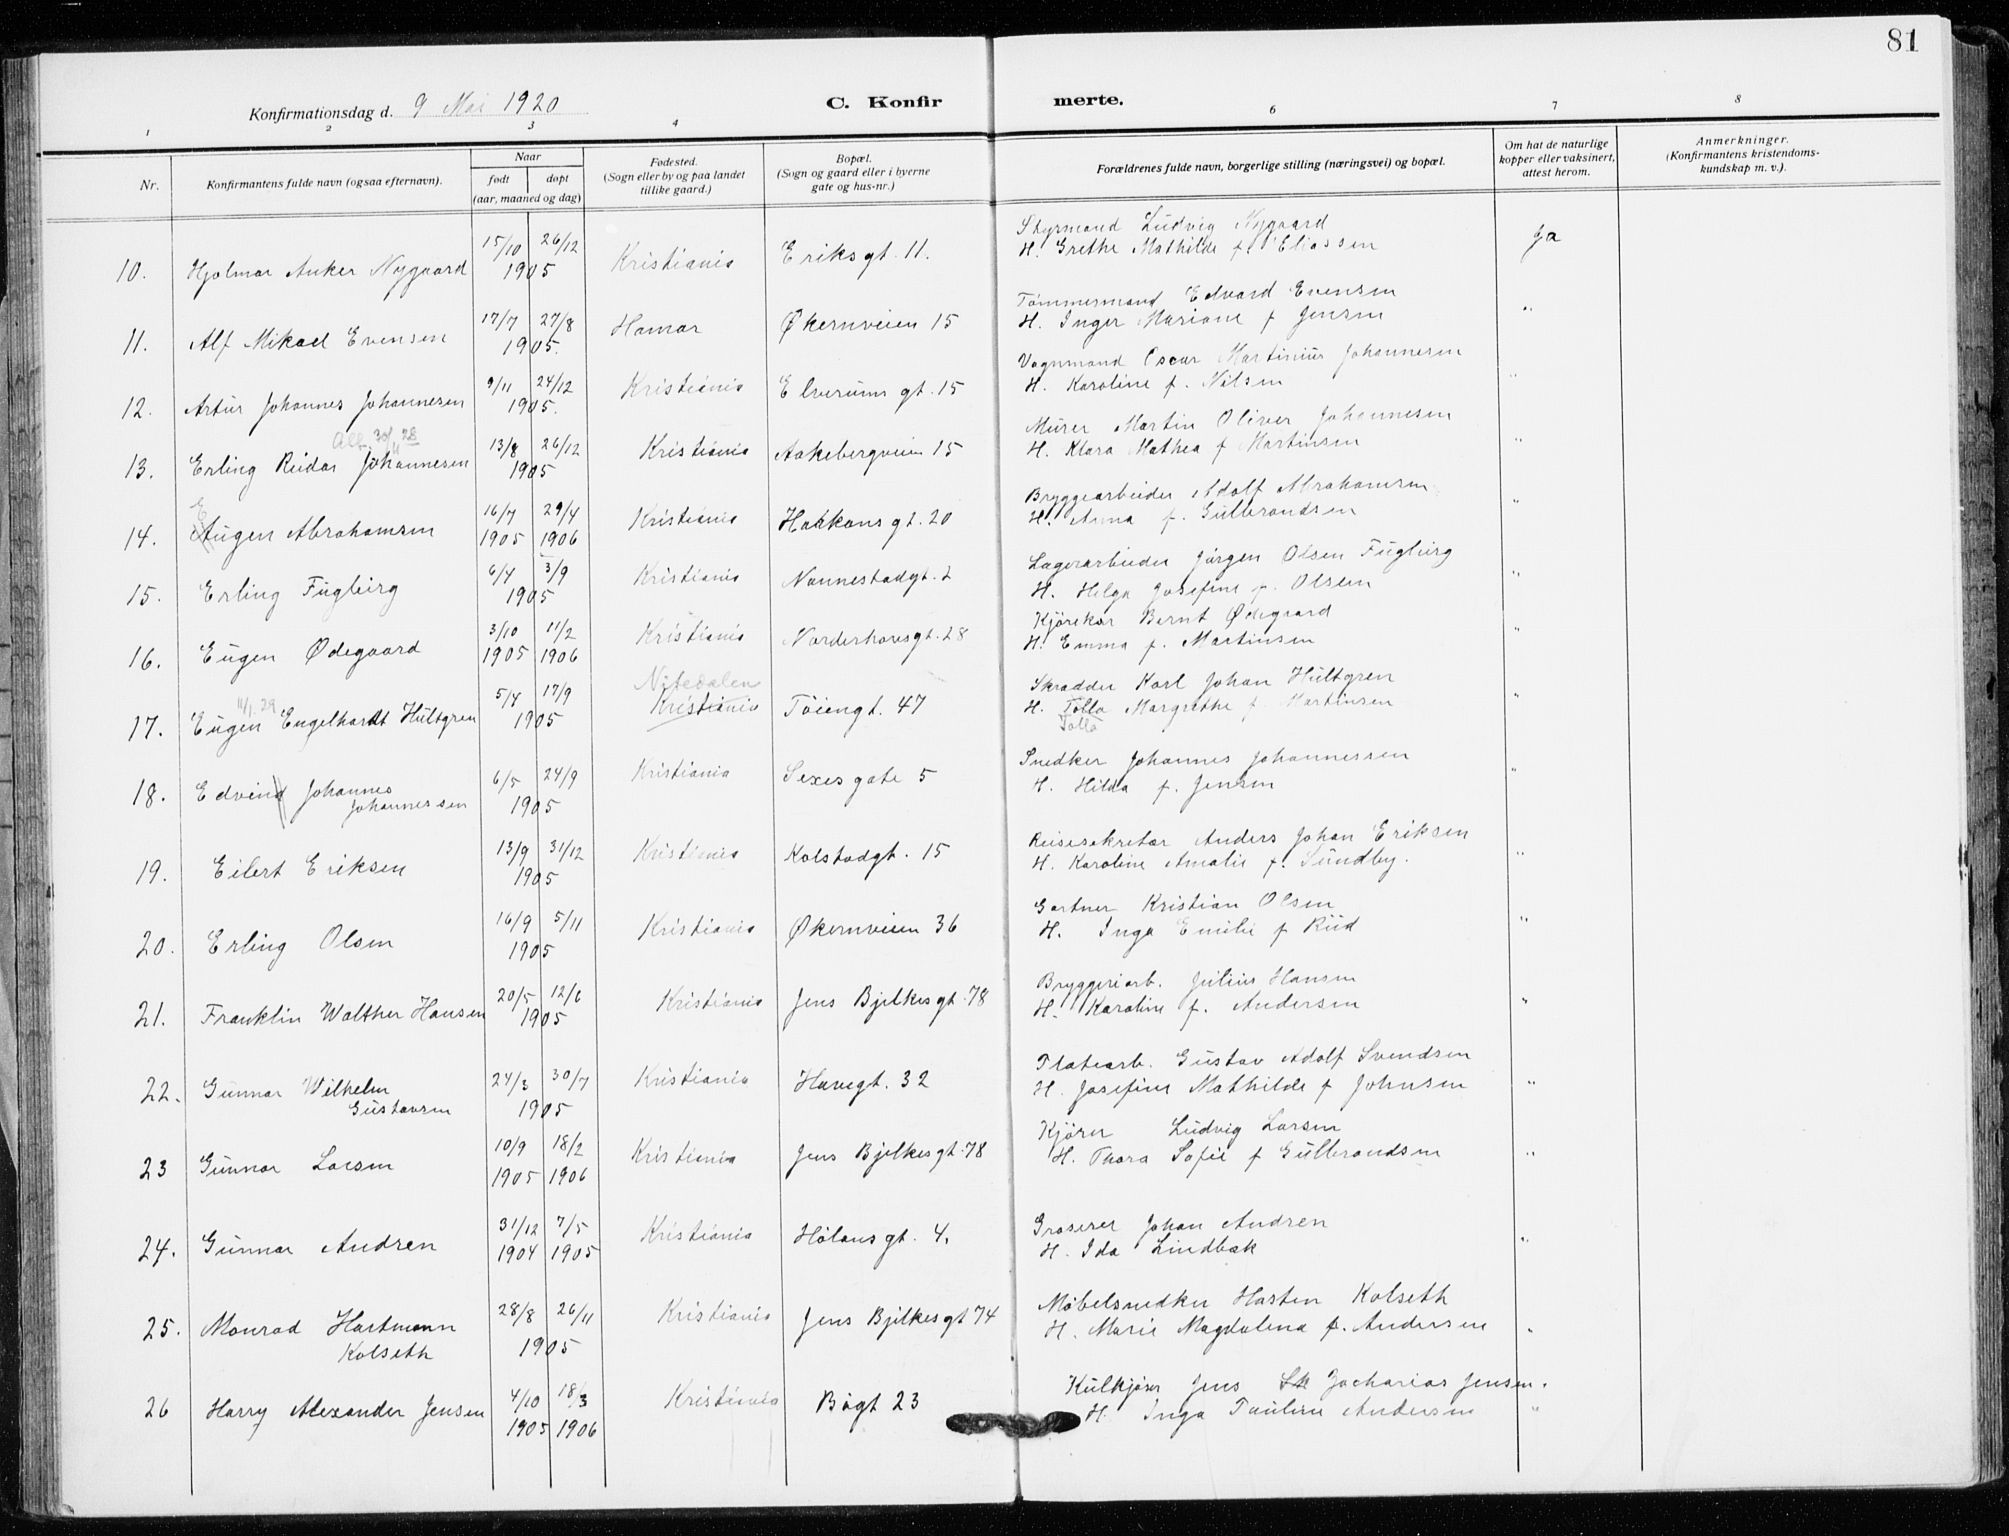 81
Konfirmationsdag d. 9 Mai 1920
C. Konfirmerte.
1 2 3 4 6 7 8
Nr.
Konfirmantens fulde navn (ogsaa efternavn).
Naar
født døpt
(aar, maaned og dag)
Fødested.
(Sogn eller by og paa landet
tillike gaard.)
Bopæl.
(Sogn og gaard eller i byerne
gate og hus-nr.)
Forældrenes fulde navn, borgerlige stilling (næringsvei) og bopæl.
Om hat de naturlige
kopper eller vaksinert,
attest herom.
Anmerkninger.
(Konfirmantens kristendoms-
kundskap m. v.).
Styrmand Ludvig Nygaard
15/10 26/12 H. Grethe Mathilde f. Eliassen Ja
10. Hjalmar Anker Nygaard 1905 Kristiania Eriksgt. 11.
Tømmermand Edvard Evensen
17/7 27/8 H. Inger Mariane f Jensen "
11. Alf Mikael Evensen 1905. Hamar Økernveien 15
Vognmand Oscar Martinius Johannesen
9/11 24/12 H. Karoline f. Nilsen "
12. Artur Johannes Johannesen 1905. Kristiania Elverums gt. 15
Murer Martin Oliver Johannesen
All. 30/11 28
13/8 26/12 H. Klara Mathea f Martinsen "
13. Erling Reidar Johannesen 1905 Kristiania Aakebergveien 15
Bryggearbeider Adolf Abrahamsen
E
16/7 29/4 H. Anna f. Gulbrandsen "
14. Augen Abrahamsen 1905 1906 Kristiania Haakonsgt. 20
Lagerarbeider Jørgen Olsen Fugleirg
6/4 3/9 H. Helga Josefine f. Olsen "
15. Erling Fugleirg 1905 Kristiania Nannestadgt. 2
Kjørekar Bernt Ødegaard
3/10 11/2 H. Emma f. Martinsen "
16. Eugen Ødegaard 1905 1906 Kristiania Norderhovsgt. 28
Nitedalen
Skrædder Karl Johan Hultgren
11/1 29
5/4 17/9 H. Tolla Margrethe f. Martinsen "
Tolla
17. Eugen Engelhardt Hultgren 1905 Kristiania Tøiengt. 47
Snedker Johannes Johannessen
6/5 24/9 H. Hilda f. Jensen "
18. Edvind Johannes
Johannessen 1905 Kristiania Sexesgate 5
Reisesekretær Anders Johan Eriksen
13/9 31/12 H. Karoline Amalie f. Sundby. "
19. Eilert Eriksen 1905 Kristiania Kolstadgt. 15
Gartner Kristian Olsen
16/9 5/11 H. Inga Emilie f Riid "
20. Erling Olsen 1905 Kristiania Økernveien 36
Bryggeriarb. Julius Hansen
20/5 12/6 H. Karoline f. Andersen "
21. Franklin Walther Hansen 1905 Kristiania Jens Bjelkesgt. 78
Platearb. Gustav Adolf Svendsen
24/3 30/7 H. Josefine Mathilde f Johnsen "
22. Gunnar Wilhelm
Gustavsen 1905 Kristiania Havegt. 32
Kjører Ludvig Larsen
10/9 18/2 H. Thora Sofie f Gulbrandsen "
23 Gunnar Larsen 1905 1906 Kristiania Jens Bjelkesgt. 78
Groserer Johan Andren
31/12 7/5 H. Ida Lindbæk "
24. Gunnar Andren 1904 1905 Kristiania Hølansgt. 4.
Møbelsnedker Harten Kolseth
28/8 26/11 H. Marie Magdalena f. Andersen "
25. Monrad Hartmann
Kolseth 1905 Kristiania Jens Bjelkesgt 74
Kulkjører Jens Zacharias Jensen.
4/10 18/3 H. Inga Pauline Andersen "
26 Harry Alexander Jensen 1905 1906 Kristiania Bøgt 23